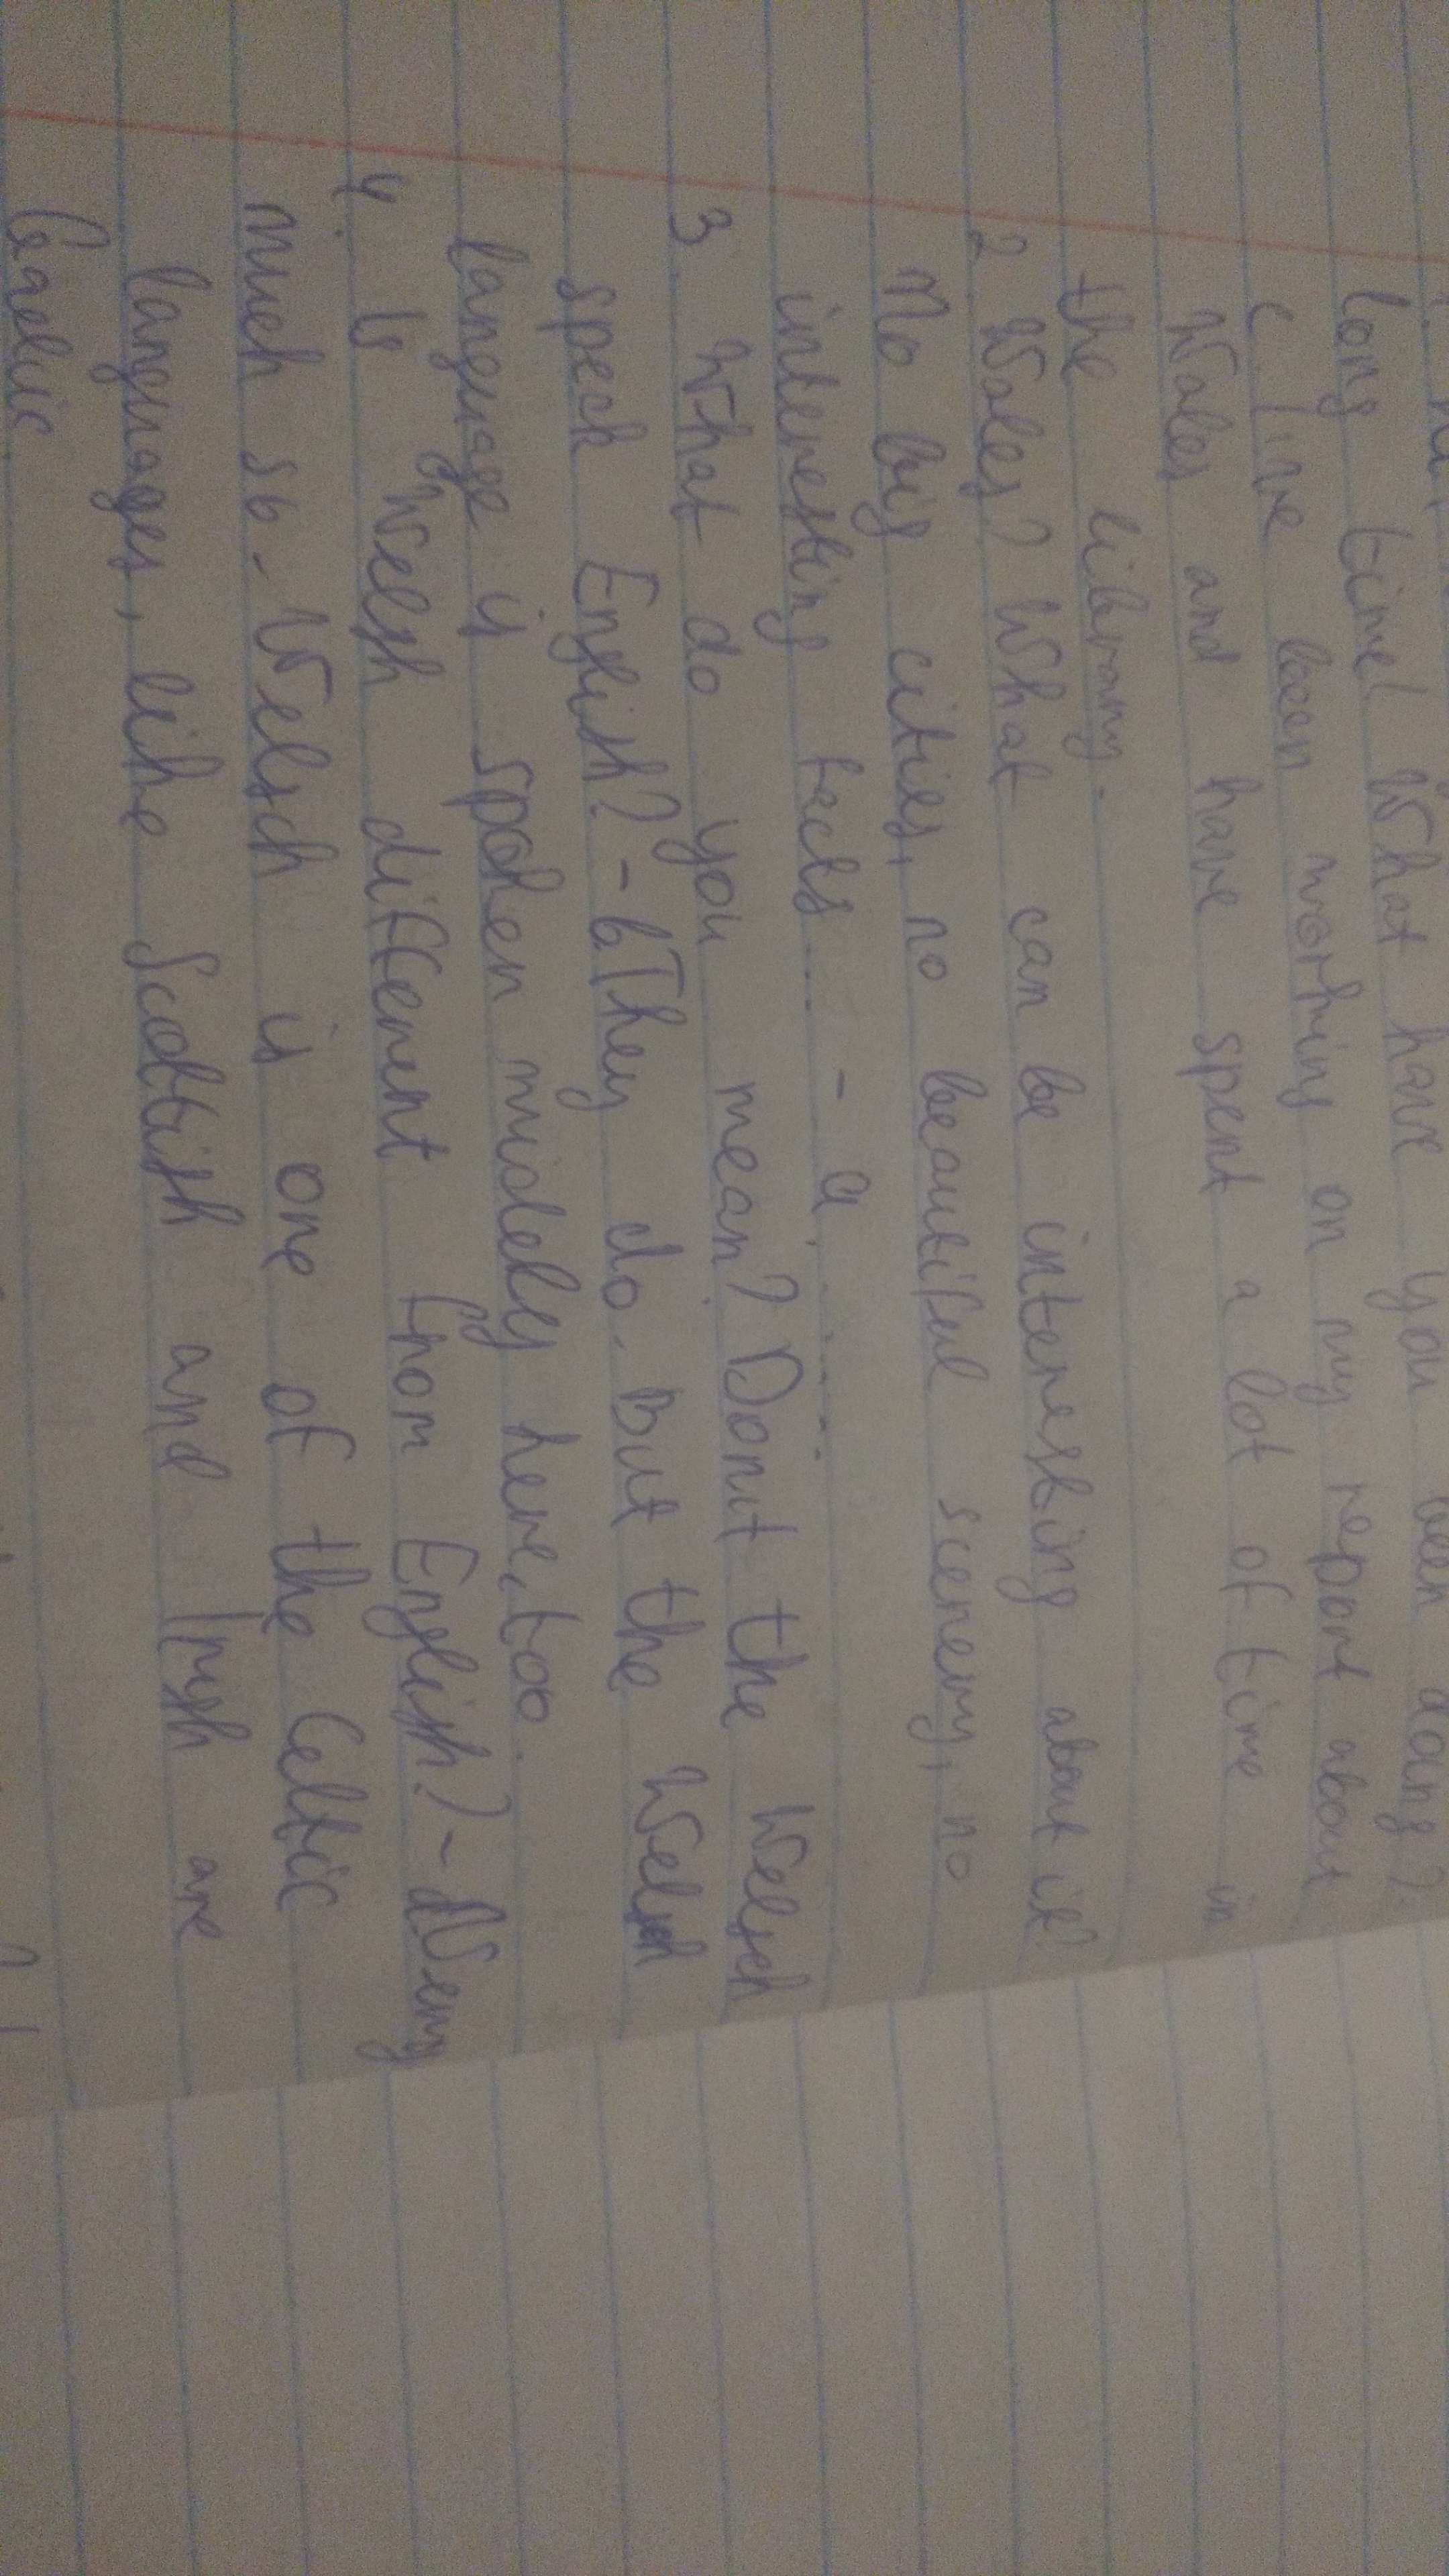 long time! What have you been doing?
c I've been working on my report about
Wales and have spent a lot of time in
the library.
2 Wales? What can be interesting about it?
No big cities, no beautiful scienery, no
interesting fects... - a.....
3. What do you mean? Don't the Welsch
speck English? - b They do. But the Welsh
language is spoken widely here, too.
4. Is Welsh different from English? - d Very
much so. Welsch is one of the Celtic
languages, like Scottish and Irish are
Gaelic